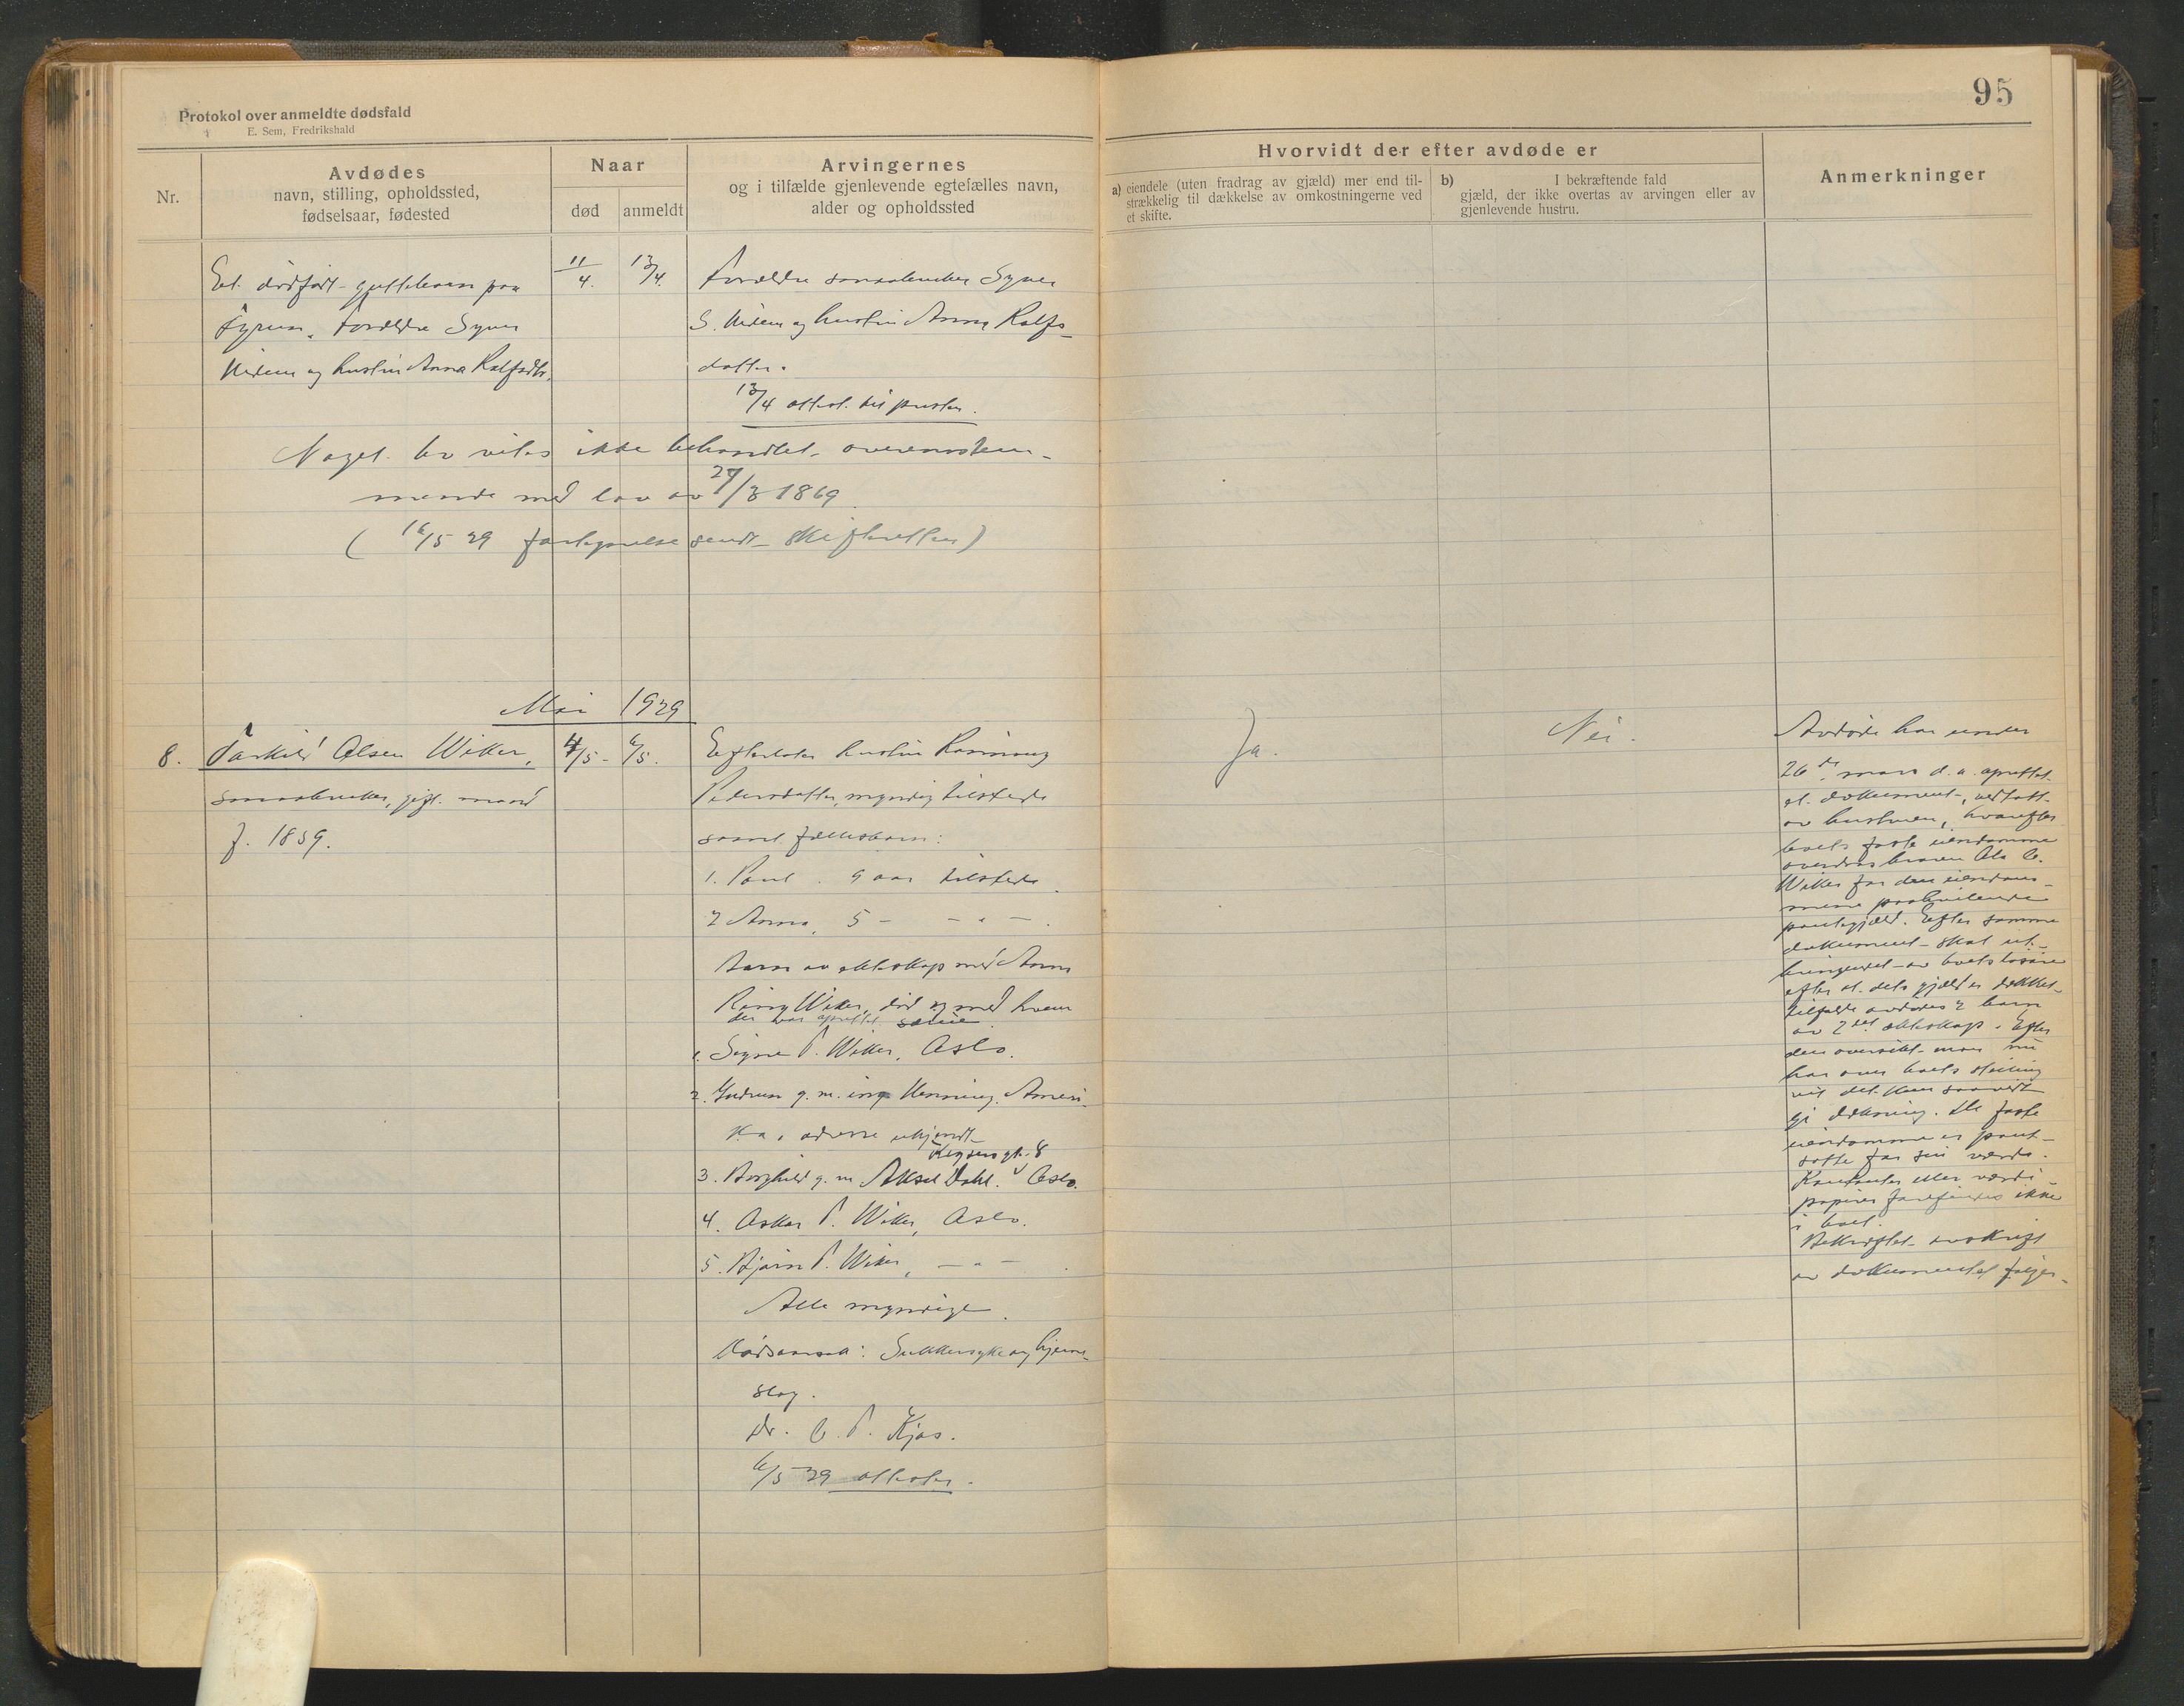 95
Protokol over anmeldte dødsfald
E. Sem, Fredrikshald
Nr.
Avdødes
navn, stilling, opholdssted,
fødselsaar, fødested
Naar
død
anmeldt
Arvingernes
og i tilfælde gjenlevende egtefælles navn,
alder og opholdssted
Hvorvidt der efter avdøde er
a) eiendele (uten fradrag av gjæld) mer end til-
strækkelig til dækkelse av omkostningerne ved
et skifte.
b) I bekræftende fald
gjæld, der ikke overtas av arvingen eller av
gjenlevende hustru.
Anmerkninger
Et dødfødt guttebarn paa
Forældre Syver
og hustru Anna Rolfsdtr.
11/4.
13/4.
Forældre Syver
S. og hustru Anna Rolfs-
datter.
13/4 attest til presten.
Noget bo vites ikke behandlet overensstem-
mende med lov av 27/3 1869.
(16/5 29 fortegnelse sendt skifteretten)
Mai 1929
8.
Olsen Wiker,
gift mand
f. 1859.
4/5 -
6/5.
Efterlater hustru
Pedersdatter, myndig tilstede
samt fællesbarn:
1. Paul. 9 aar tilstede.
2 Anna, 5 - - " - .
Barn av ekteskap med Anna
Wiker, død og med hvem
der var oprettet
1. Signe P. Wiker, Oslo.
2. Gudrun g. m. ing. Henning, Ameri-
ka, adresse ukjendt
3. Borghild g. m. Aksel Dahl. Keysersgt. 8 Oslo.
4. Oskar P. Wiker, Oslo.
5. Bjarne P. Wiker, - " - .
Alle myndige.
Dødsaarsak: Sukkersyke og hjerne-
slag.
Dr. C. P. Kjos.
6/5 29 attester.
Ja.
Nei.
Avdøde har under
26de mars d. a. oprettet
et dokument, vedtatt
av hustruen, hvorefter
boets faste eiendomme
overdras broren Ole O.
Wiker for den eiendom-
mene paahvilende
pantegjæld. Efter samme
dokument skal ut-
bringendet av boets løsøre
efter at dets gjæld er dækket
tilfalde avdødes 2 barn
av 2det ekteskap. Efter
den oversikt man nu
har over boets stilling
vil det kun saavidt
gi dækning. De faste
eiendomme er pant-
satte for sin værdi.
Kontanter eller værdi-
papirer forefindes ikke
i boet.
Bekræftet avskrift
av dokumentet følger.